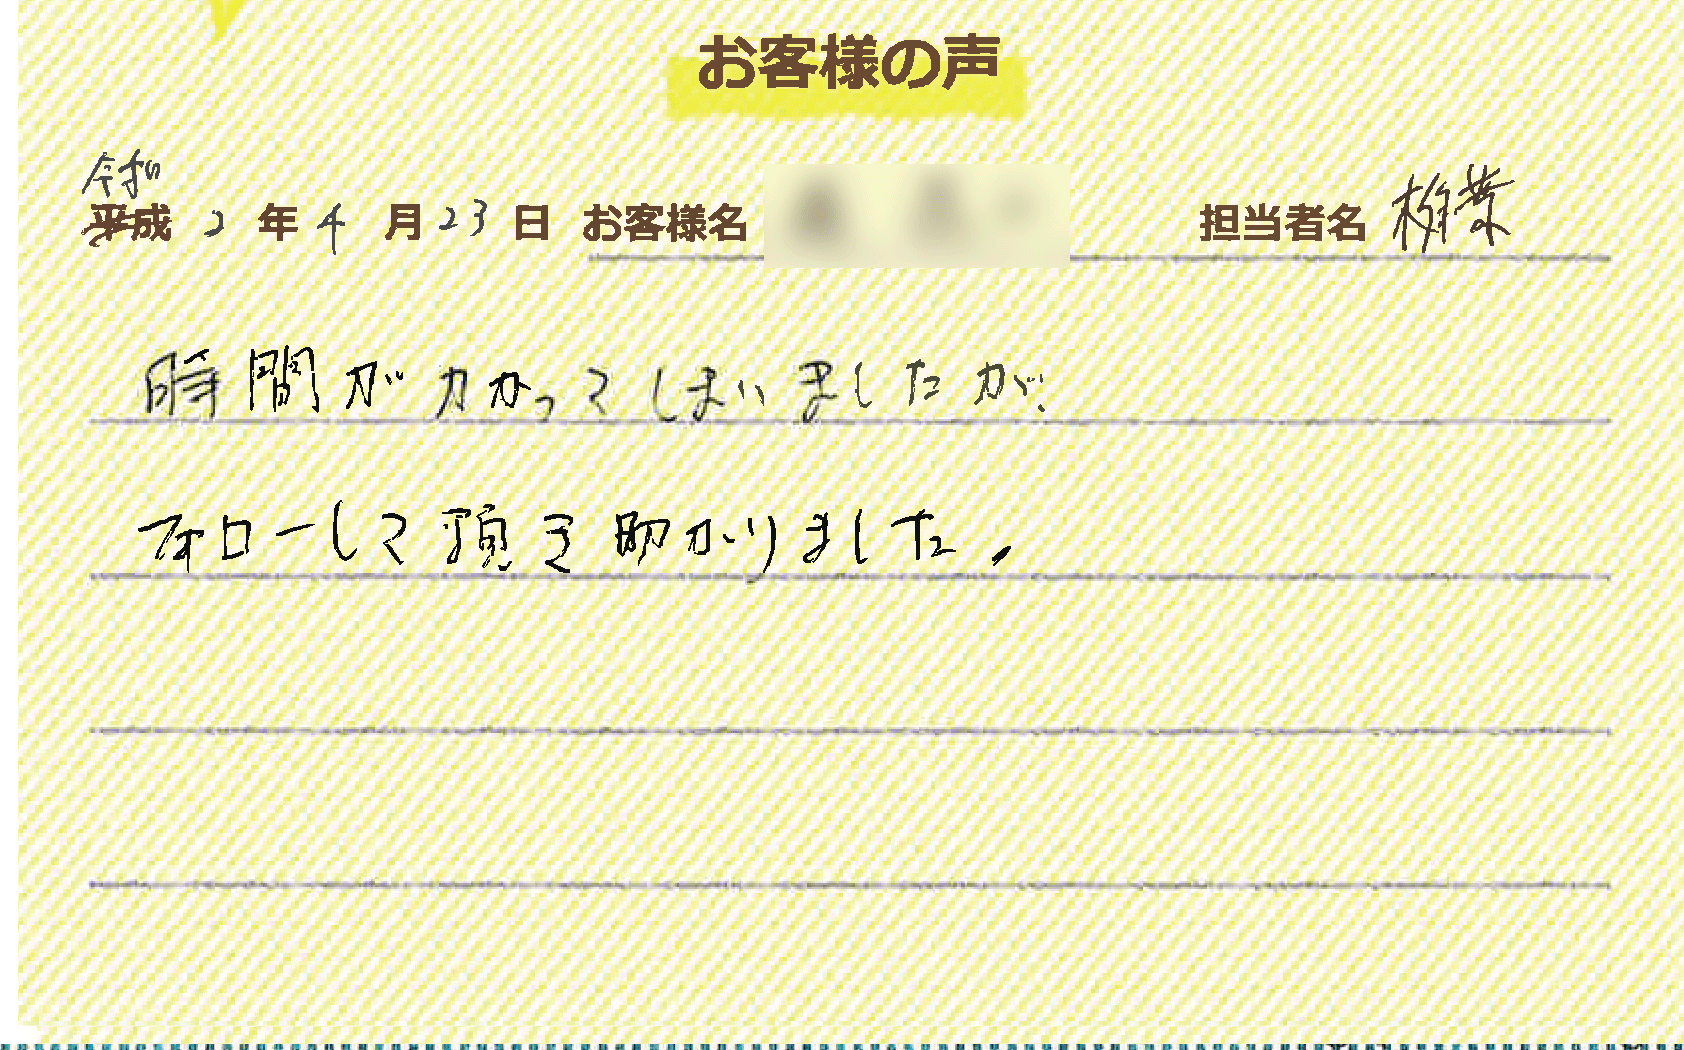 お客様の声
令和
平成 2 年 4 月 23 日 お客様名 担当者名
時間がかかってしまいましたが、
フォローして頂き助かりました。